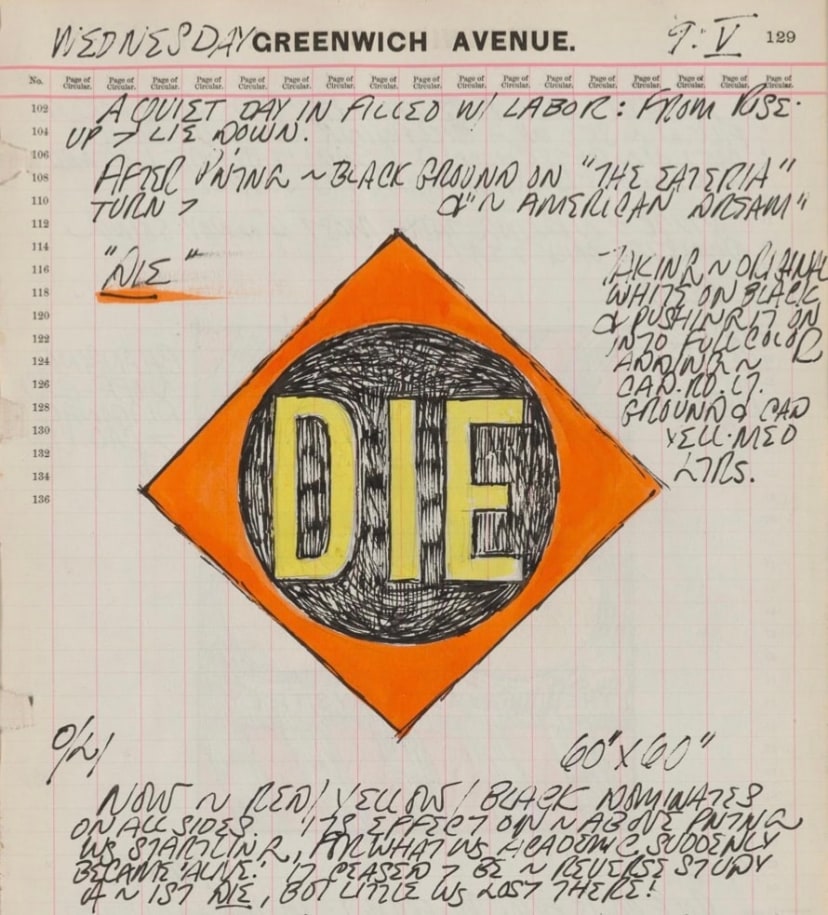 WEDNESDAY GREENWICH AVENUE. 9: V 129
No. Page of Circular. Page of Circular. Page of Circular. Page of Circular. Page of Circular. Page of Circular. Page of Circular. Page of Circular. Page of Circular. Page of Circular. Page of Circular. Page of Circular. Page of Circular. Page of Circular. Page of Circular. Page of Circular. Page of Circular.
102 A QUIET DAY IN FILLED W/ LABOR: FROM RISE·
104 UP > LIE DOWN.
106
108 AFTER PNTNG ~ BLACK GROUND ON "THE EATERIA"
110 TURN > & "~ AMERICAN DREAM"
112
114
116 "DIE"
118
120
122
124
126
128
130
132
134
136
TAKING ~ ORIGINAL
WHITE ON BLACK
& PUSHING IT ON
INTO FULL COLOR
ADDING ~
CAD. RD. LT.
GROUND & CAD
YELL·MED
LTRS.
DIE
O/L/ 60" X 60"
NOW ~ RED/YELLOW/BLACK DOMINATES
ON ALL SIDES. ITS EFFECT ON ~ ABOVE PNTNG
WS STARTLING, FOR WHAT WS ACADEMIC SUDDENLY
BECAME 'ALIVE.' IT CEASED > BE ~ REVERSE STUDY
~ 1ST DIE, BUT LITTLE WS LOST THERE!